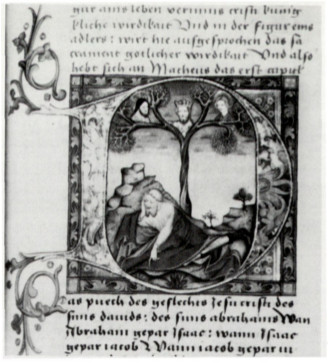 gar aus leben vermuns cristi kunig
kliche wirdikait Vnd in der figur eins
adlers: wirt hie aufgesprochen das sa
crament gotlicher wirdikait Vnd also
hebt sich an Matheus das erst capitel
Das puech des geslechts Jesu cristi des
suns davids: des suns abrahams Wan
Abraham gepar Isaac: wann Isaac
gepar iacob Wann iacob gepar iu